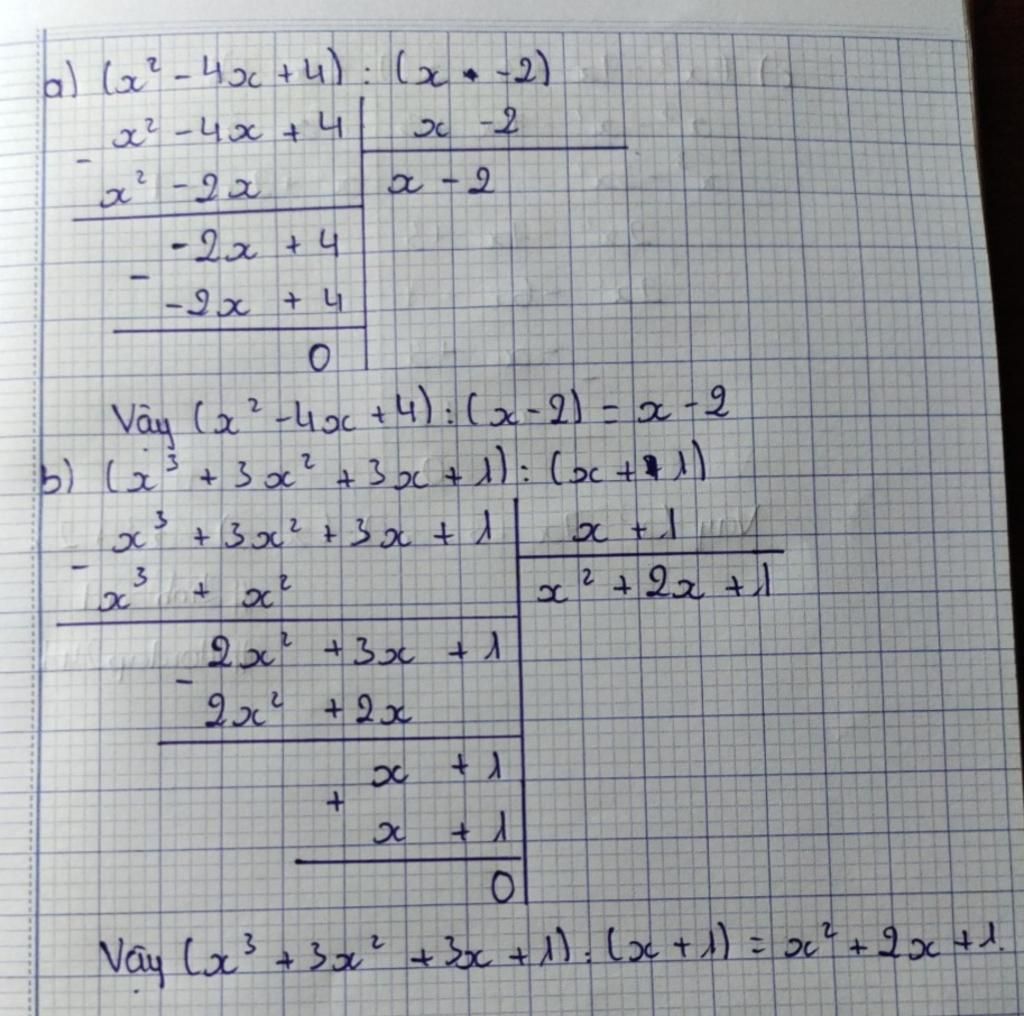 a) (x² - 4x + 4) : (x - 2)
x² - 4x + 4 | x - 2
-
x² - 2x | x - 2
-2x + 4
-
-2x + 4
0
Vậy (x² - 4x + 4) : (x - 2) = x - 2
b) (x³ + 3x² + 3x + 1) : (x + 1)
x³ + 3x² + 3x + 1 | x + 1
-
x³ + x² | x² + 2x + 1
2x² + 3x + 1
-
2x² + 2x
x + 1
+
x + 1
0
Vậy (x³ + 3x² + 3x + 1) : (x + 1) = x² + 2x + 1.